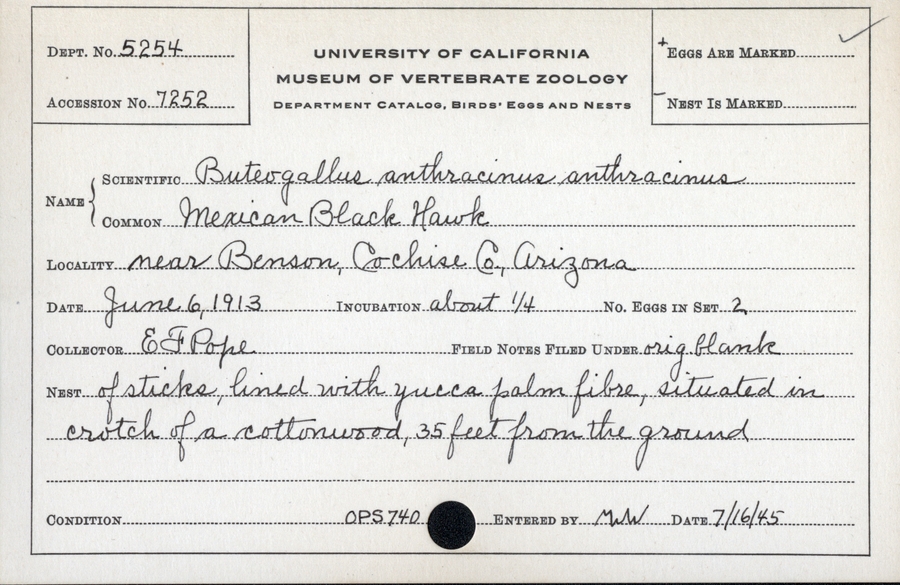 DEPT. NO. 5254
ACCESSION NO. 7252
UNIVERSITY OF CALIFORNIA
MUSEUM OF VERTEBRATE ZOOLOGY
DEPARTMENT CATALOG, BIRDS' EGGS AND NESTS
+ EGGS ARE MARKED ✓
- NEST IS MARKED
NAME { SCIENTIFIC Buteogallus anthracinus anthracinus
COMMON Mexican Black Hawk
LOCALITY near Benson, Cochise Co., Arizona
DATE June 6, 1913 INCUBATION about 1/4 NO. EGGS IN SET 2
COLLECTOR E F Pope FIELD NOTES FILED UNDER orig blank
NEST of sticks, lined with yucca palm fibre, situated in
crotch of a cottonwood, 35 feet from the ground
CONDITION OPS 740 ENTERED BY MW DATE 7/16/45